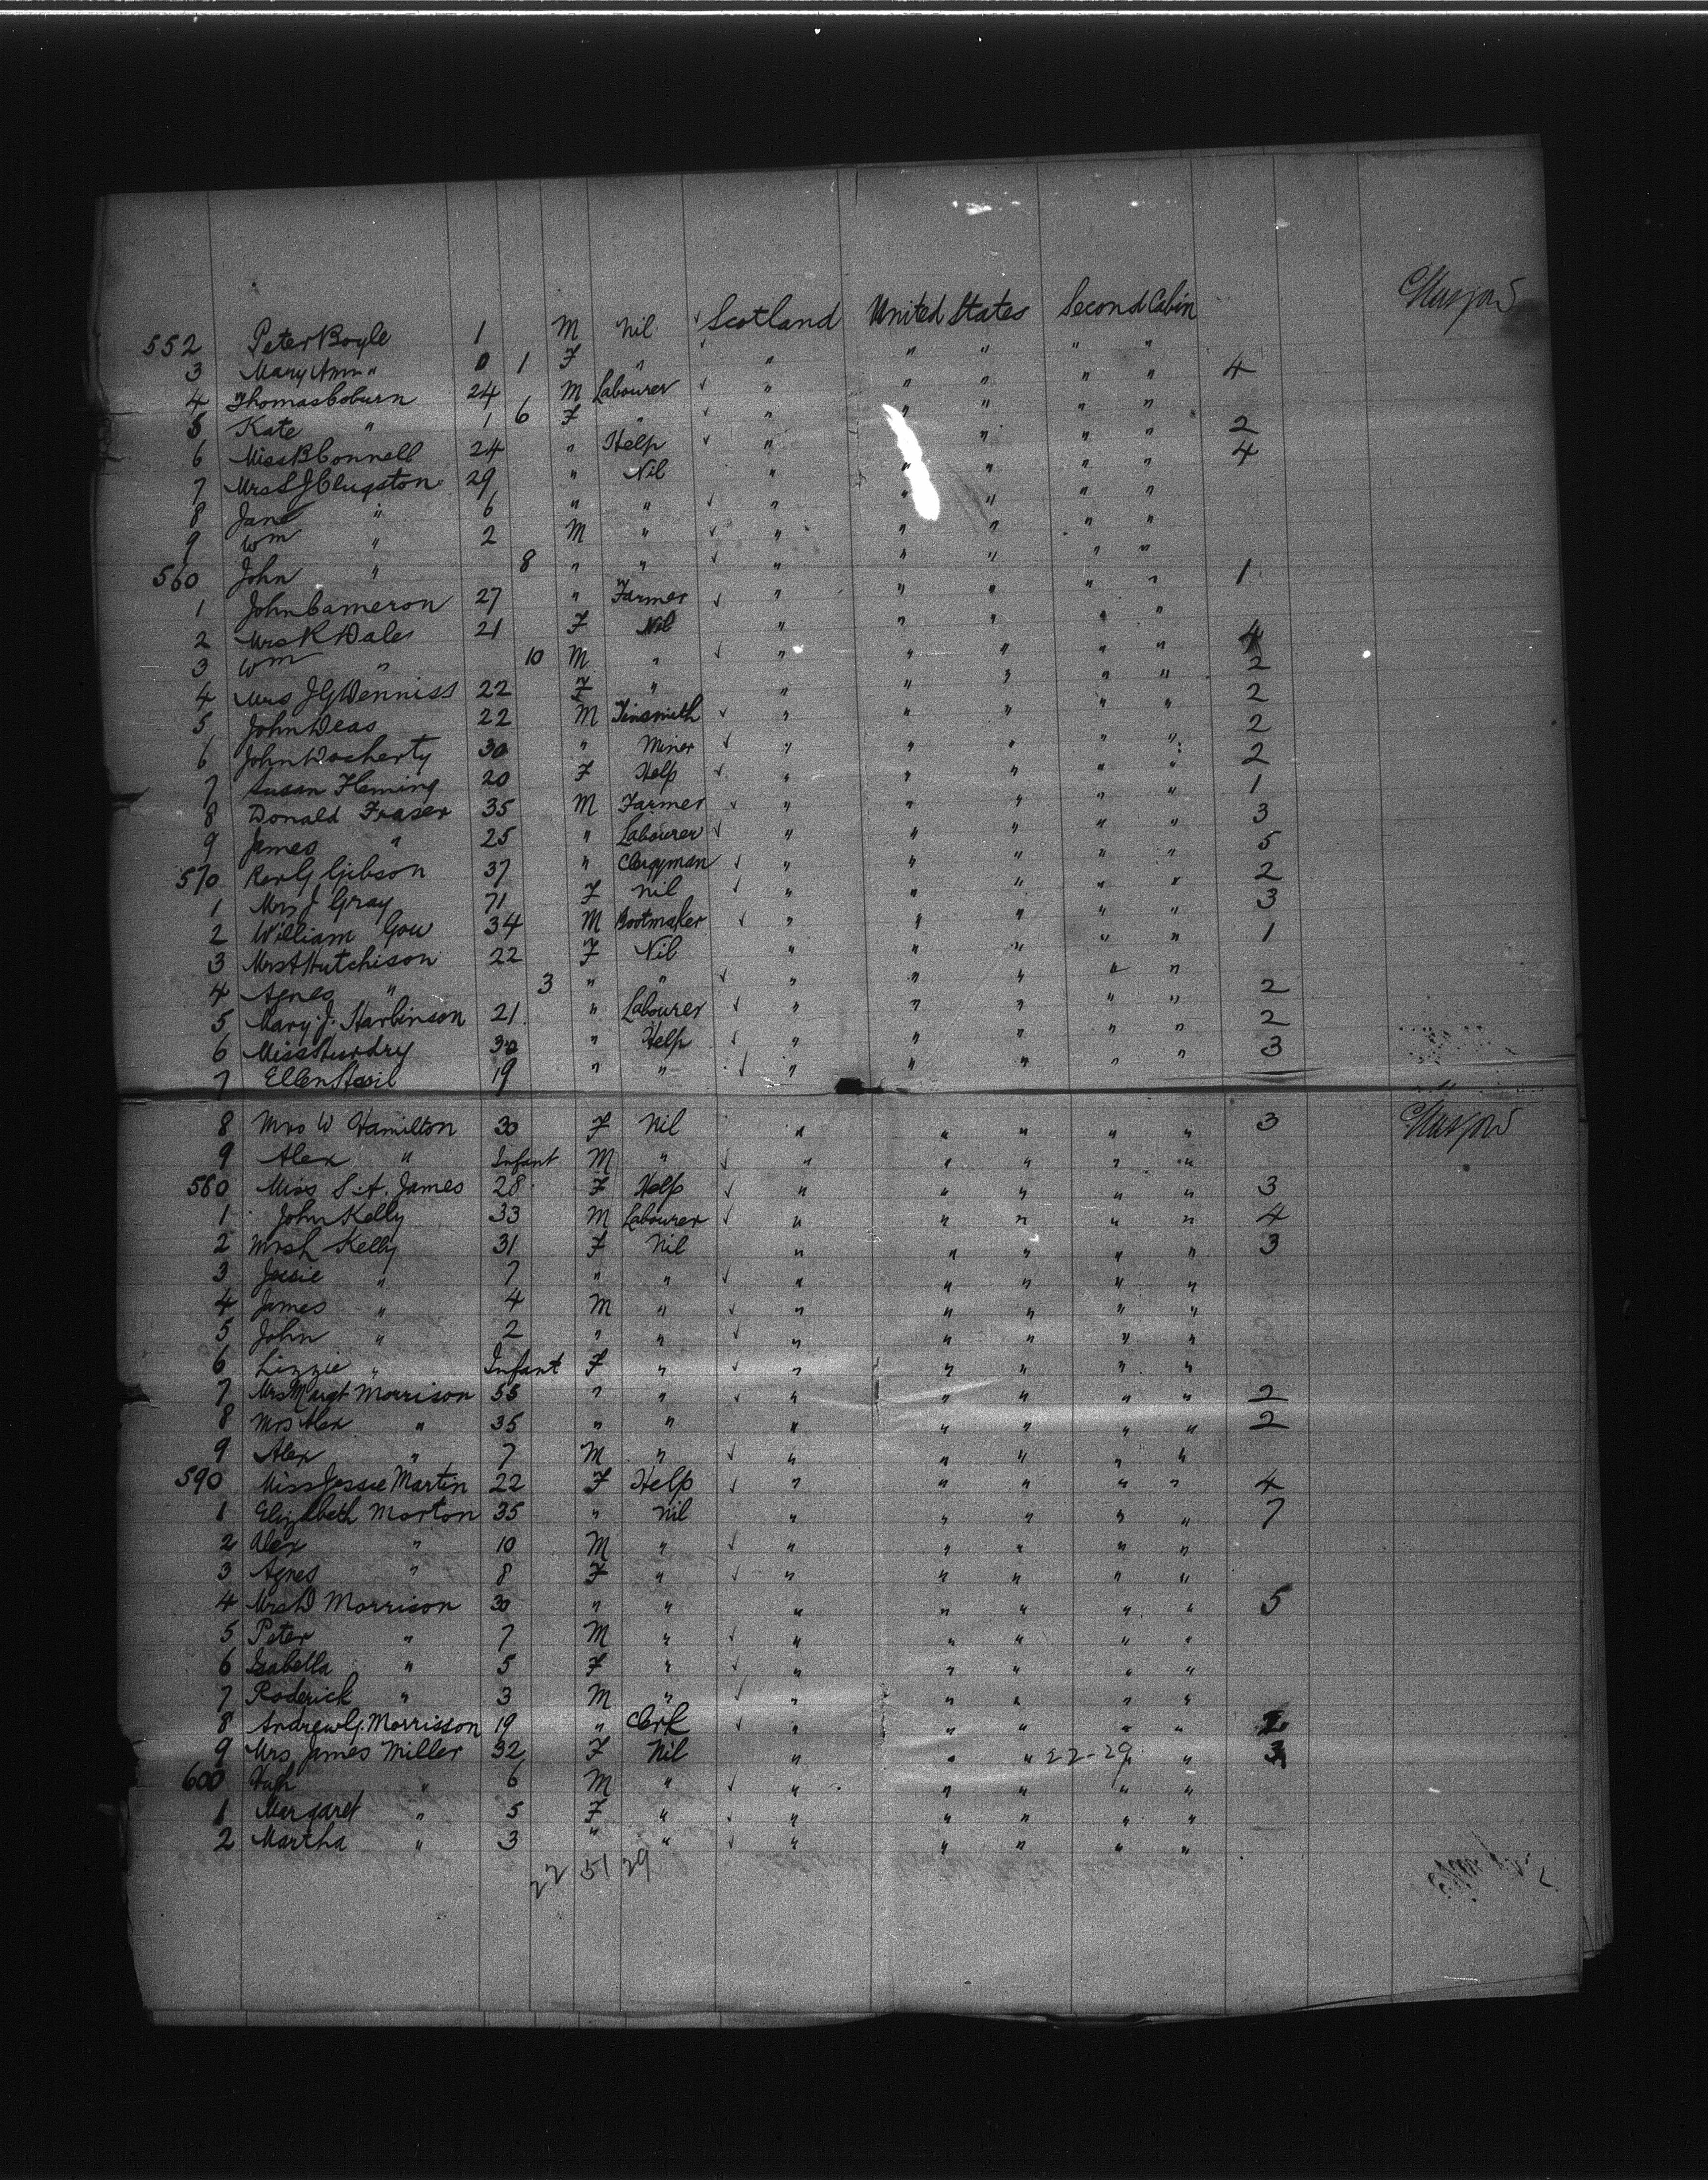 552 Peter Boyle 1 M Nil ✓ Scotland United States Second Cabin Glasgow
3 Mary Ann " 0 1 F " ✓ " " " " "
4 Thomas Coburn 24 M Labourer ✓ " " " " " 4
5 Kate " 1 6 F " ✓ " " " " "
6 Miss B Connell 24 " Help ✓ " " " " " 2
7 Mrs S J Clugston 29 " Nil " " " " " 4
8 Jane " 6 " " ✓ " " " " "
9 Wm " 2 M " ✓ " " " " "
560 John " 8 " " ✓ " " " " "
1 John Cameron 27 " Farmer ✓ " " " " " 1
2 Mrs R Dale 21 F Nil " " " " "
3 Wm " 10 M " ✓ " " " " "
4 Mrs J G Denniss 22 F " " " " " " 2
5 John Deas 22 M Tinsmith ✓ " " " " " 2
6 John Docherty 30 " Miner ✓ " " " " " 2
7 Susan Fleming 20 F Help ✓ " " " " " 2
8 Donald Fraser 35 M Farmer ✓ " " " " " 1
9 James " 25 " Labourer ✓ " " " " " 3
570 Rev G Gibson 37 " Clergyman ✓ " " " " " 5
1 Mrs J Gray 71 F Nil ✓ " " " " " 2
2 William Gow 34 M Bootmaker ✓ " " " " " 3
3 Mrs A Hutchison 22 F Nil " " " " " 1
4 Agnes " 3 " " ✓ " " " " "
5 Mary J. Harbinson 21 " Labourer ✓ " " " " " 2
6 Miss 30 " Help ✓ " " " " " 2
7 Ellen 19 " " ✓ " " " " " 3
8 Mrs W Hamilton 30 F Nil " " " " " 3 Glasgow
9 Alex " Infant M " ✓ " " " " "
580 Miss S. A. James 28 F Help ✓ " " " " " 3
1 John Kelly 33 M Labourer ✓ " " " " " 4
2 Mrs Kelly 31 F Nil " " " " " 3
3 " 7 " " ✓ " " " " "
4 James " 4 M " ✓ " " " " "
5 John " 2 " " ✓ " " " " "
6 Lizzie " Infant F " ✓ " " " " "
7 Mrs Margt Morrison 55 " " ✓ " " " " " 2
8 Mrs Alex " 35 " " " " " " " 2
9 Alex " 7 M " ✓ " " " " "
590 Miss Jessie Martin 22 F Help ✓ " " " " " 4
1 Elizabeth Morton 35 " Nil " " " " " 7
2 Alex " 10 M " ✓ " " " " "
3 Agnes " 8 F " ✓ " " " " "
4 Mrs D Morrison 30 " " " " " " " 5
5 Peter " 7 M " ✓ " " " " "
6 Isabella " 5 F " ✓ " " " " "
7 Roderick " 3 M " ✓ " " " " "
8 Andrew G. Morrisson 19 " Clerk ✓ " " " " " 2
9 Mrs James Miller 32 F Nil " " " 22-29 " " 3
600 Hugh " 6 M " ✓ " " " " "
1 Margaret " 5 F " ✓ " " " " "
2 Martha " 3 " " ✓ " " " " "
22 51 29